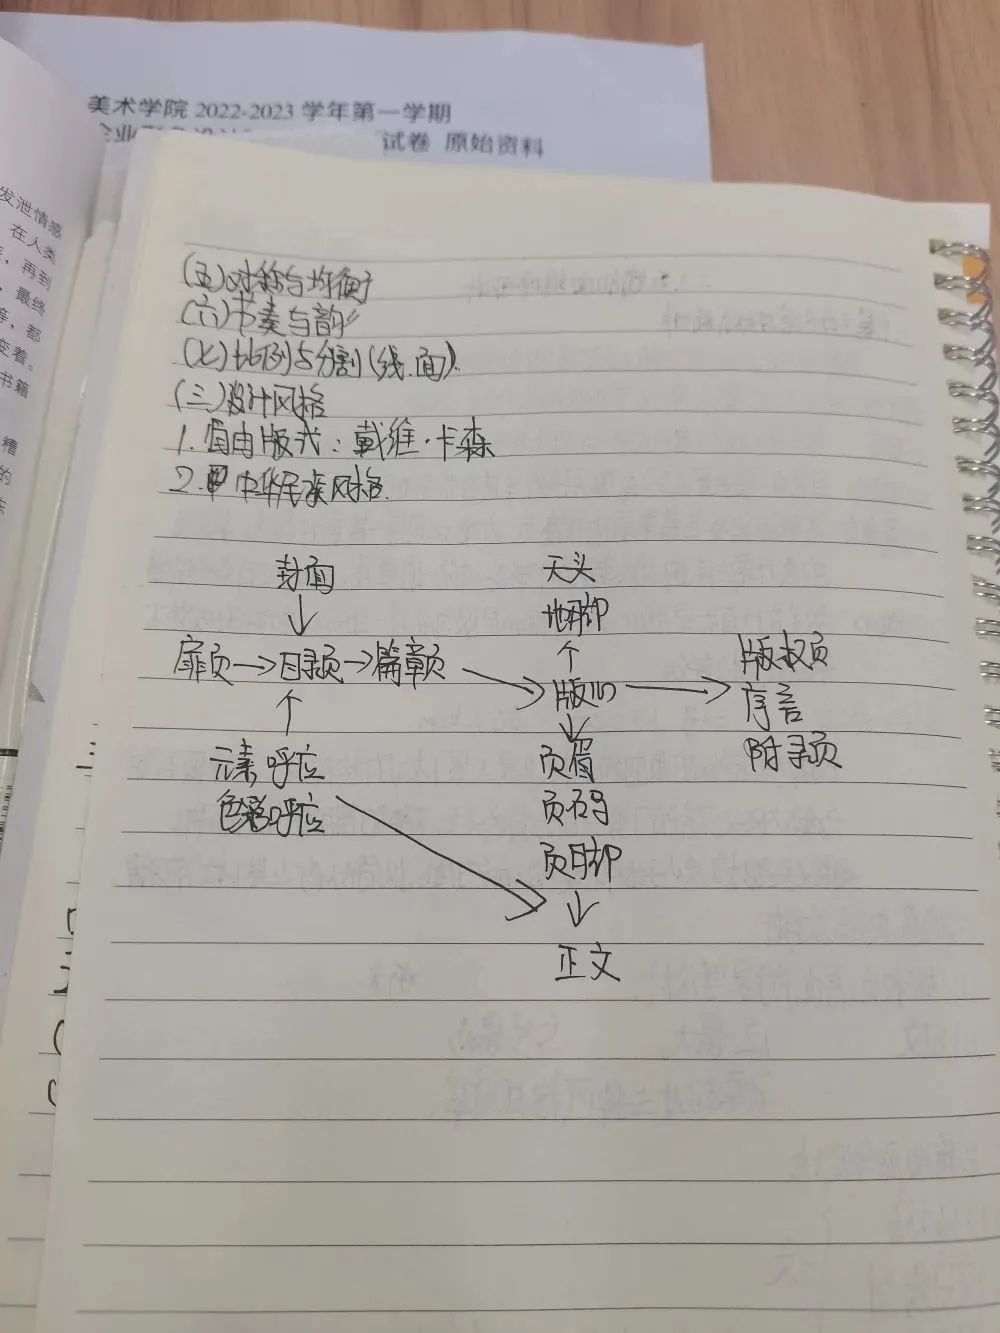 美术学院 2022-2023 学年第一学期
试卷 原始资料
发泄情感
在人类
，再到
，最终
等，都
变着。
书籍
糟
的
(五)对称与均衡
(六)节奏与韵
(七)比例与分割(线.面).
(三)设计风格
1.自由版式：戴维·卡森
2.中华民族风格.
封面
扉页→目录页→篇章页
元素呼应
色彩呼应
天头
地脚
版心
页眉
页码
页脚
正文
版权页
序言
附录页